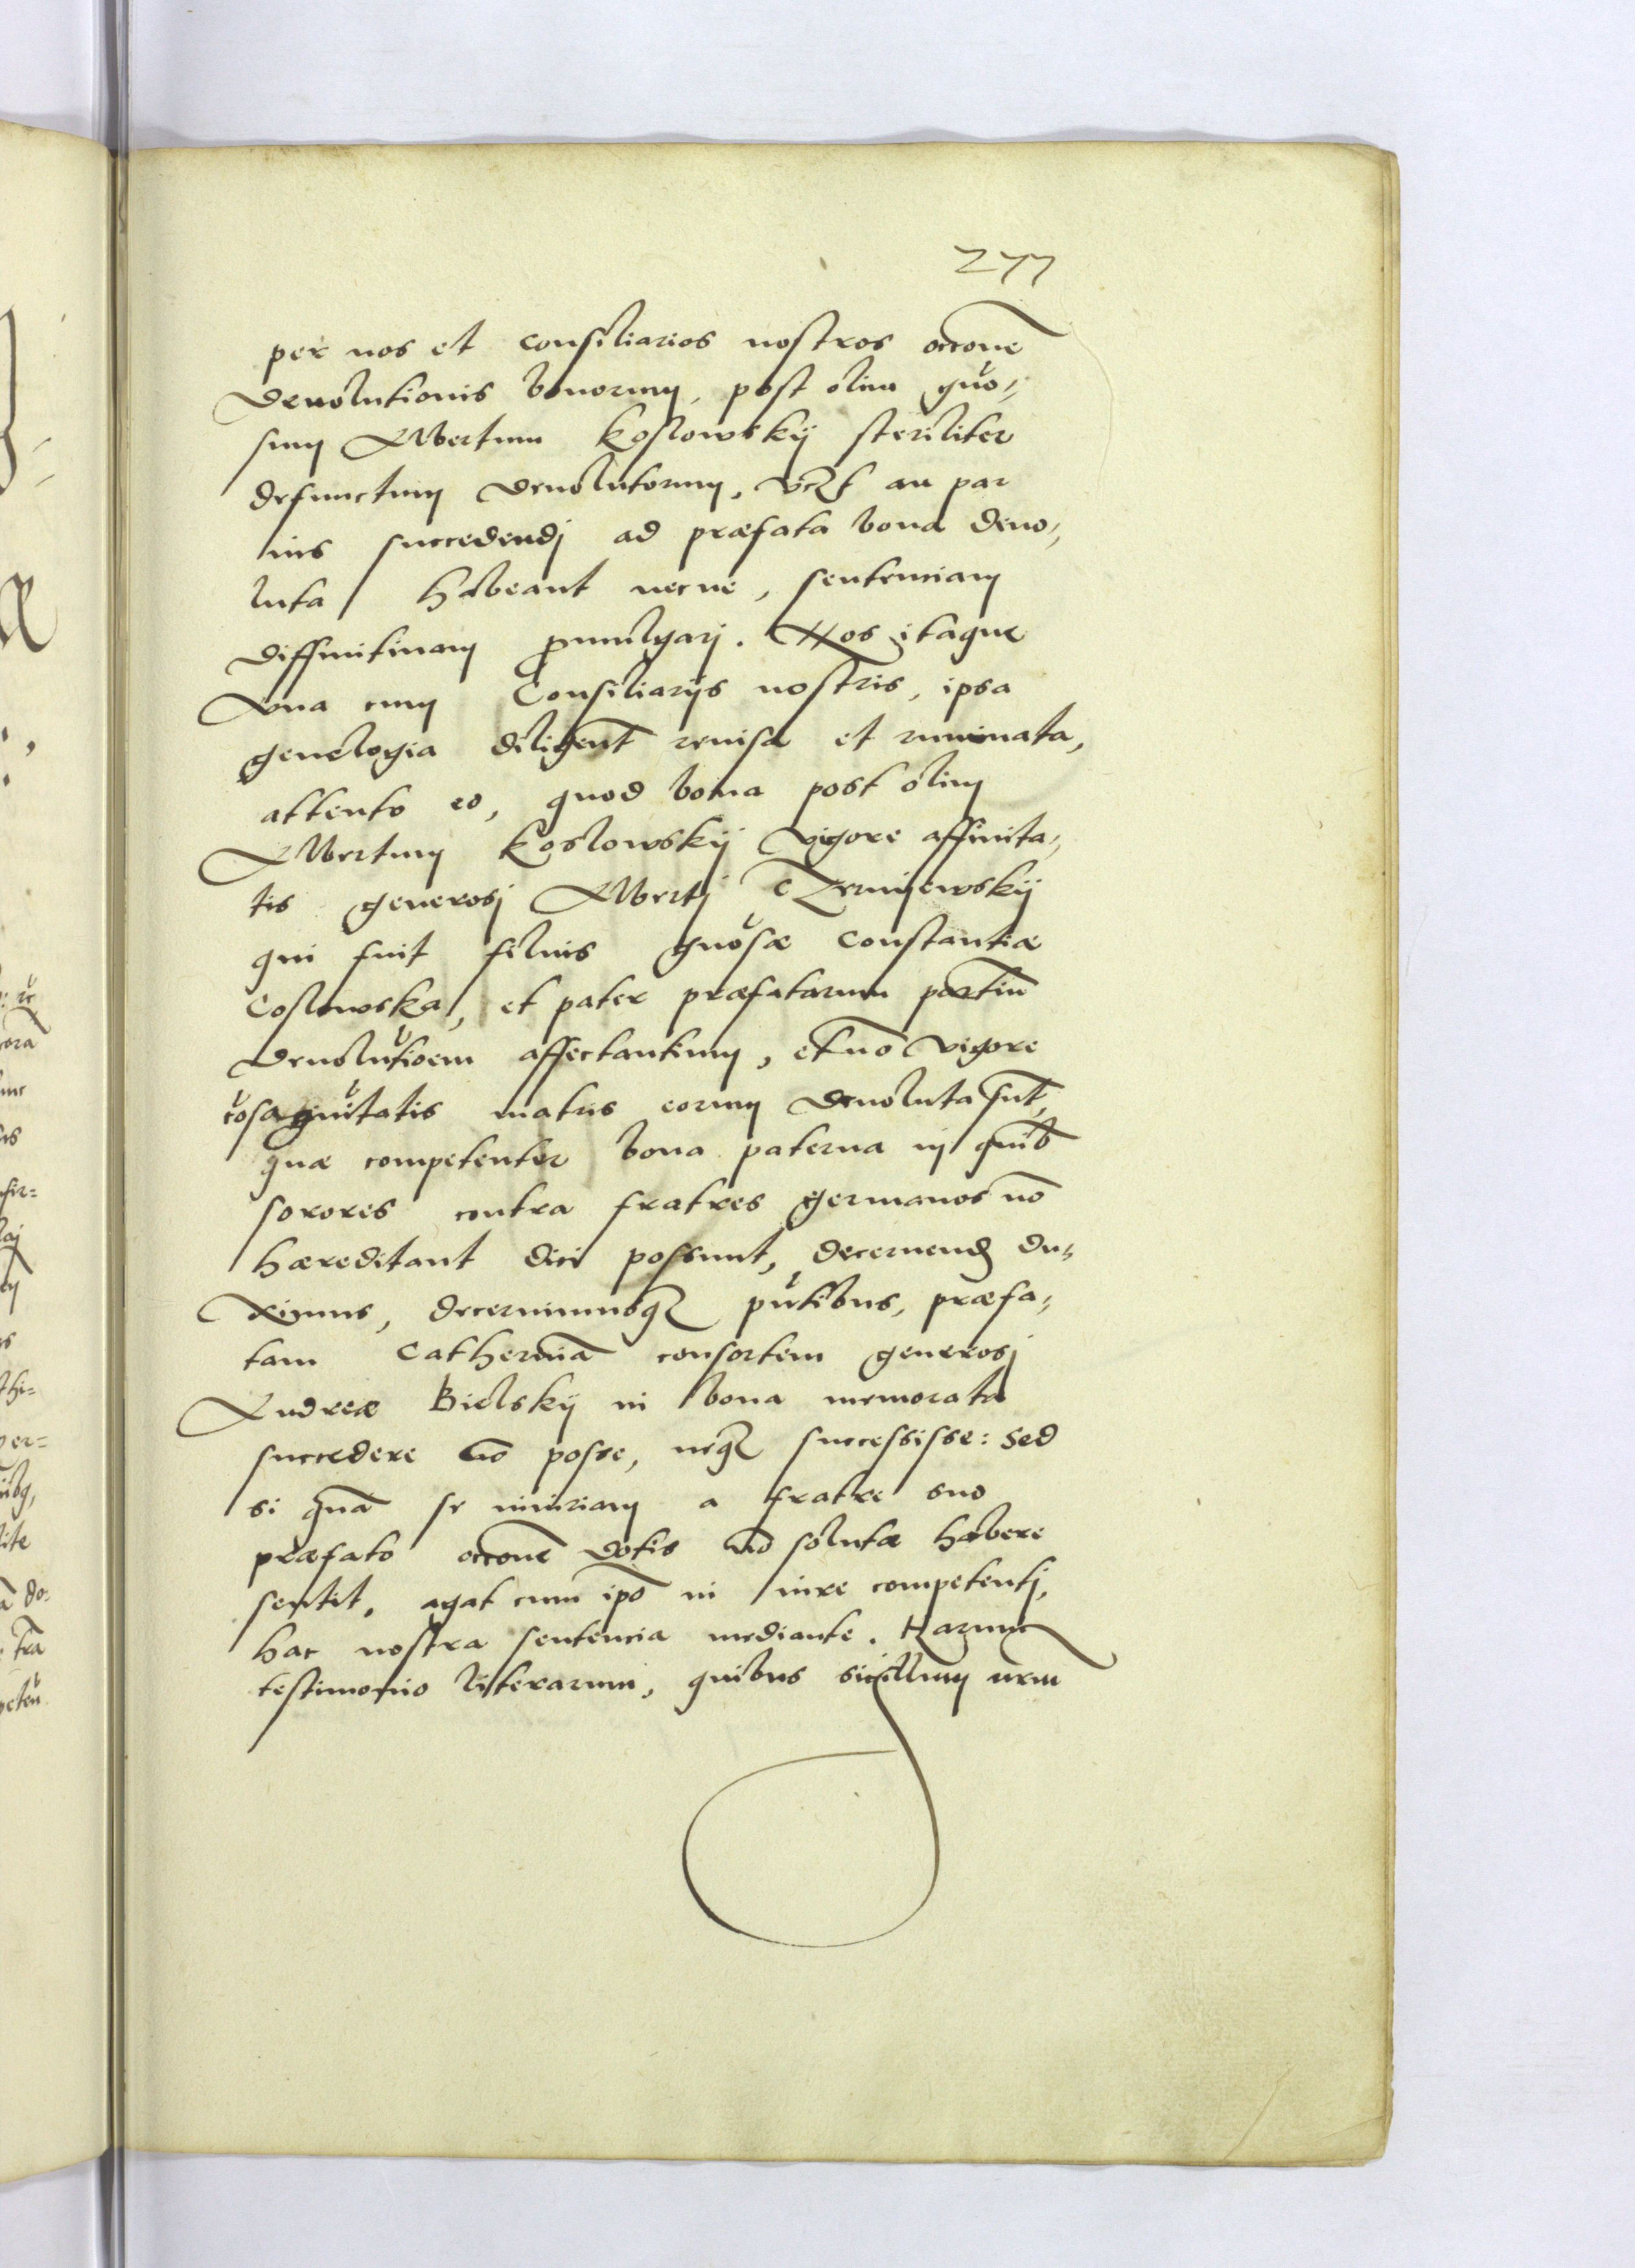 277
per nos et consiliarios nostros occōne
devolutionis bonorum, post olim gno-
sum Albertum Koslowskÿ steriliter
defunctum devolutorum, vcƷt an par
ius succedendj ad præfata bona devo-
luta habeant necne, sentenciam
diffinitivam ꝓmulgarj. Nos itaque
Vna cum Consiliarijs nostris, ipsa
genelogia diligent̄ revisa et ruminata,
attento eo, quod bona post olim
Albertum Koslowskÿ vigore affinita-
tis generosj Albertj CZemÿewskÿ
qui fuit filius gnosæ Constantiæ
Coslowska, et pater præfatarum partiū
devolutioem affectantium, et nō vigore
cosaguitatis matris eorum devoluta sūt,
quæ competenter bona paterna in quib̄
sorores contra fratres germanos nō
hæreditant dici possunt, decernend du-
ximus, decernimusqƷ pntibus, præfa-
tam Catherinā consortem generosj
Andreæ Bielskÿ in bona memorata
succedere nō posse, neqƷ successisse: Sed
si quā se iniuriam a fratre suo
præfato occōne dotis nō solutæ habere
sentit, agat cum ipō in iure competentj,
hac nostra sentencia mediante. Harum
testimonio literarum, quibus sigillum nrm